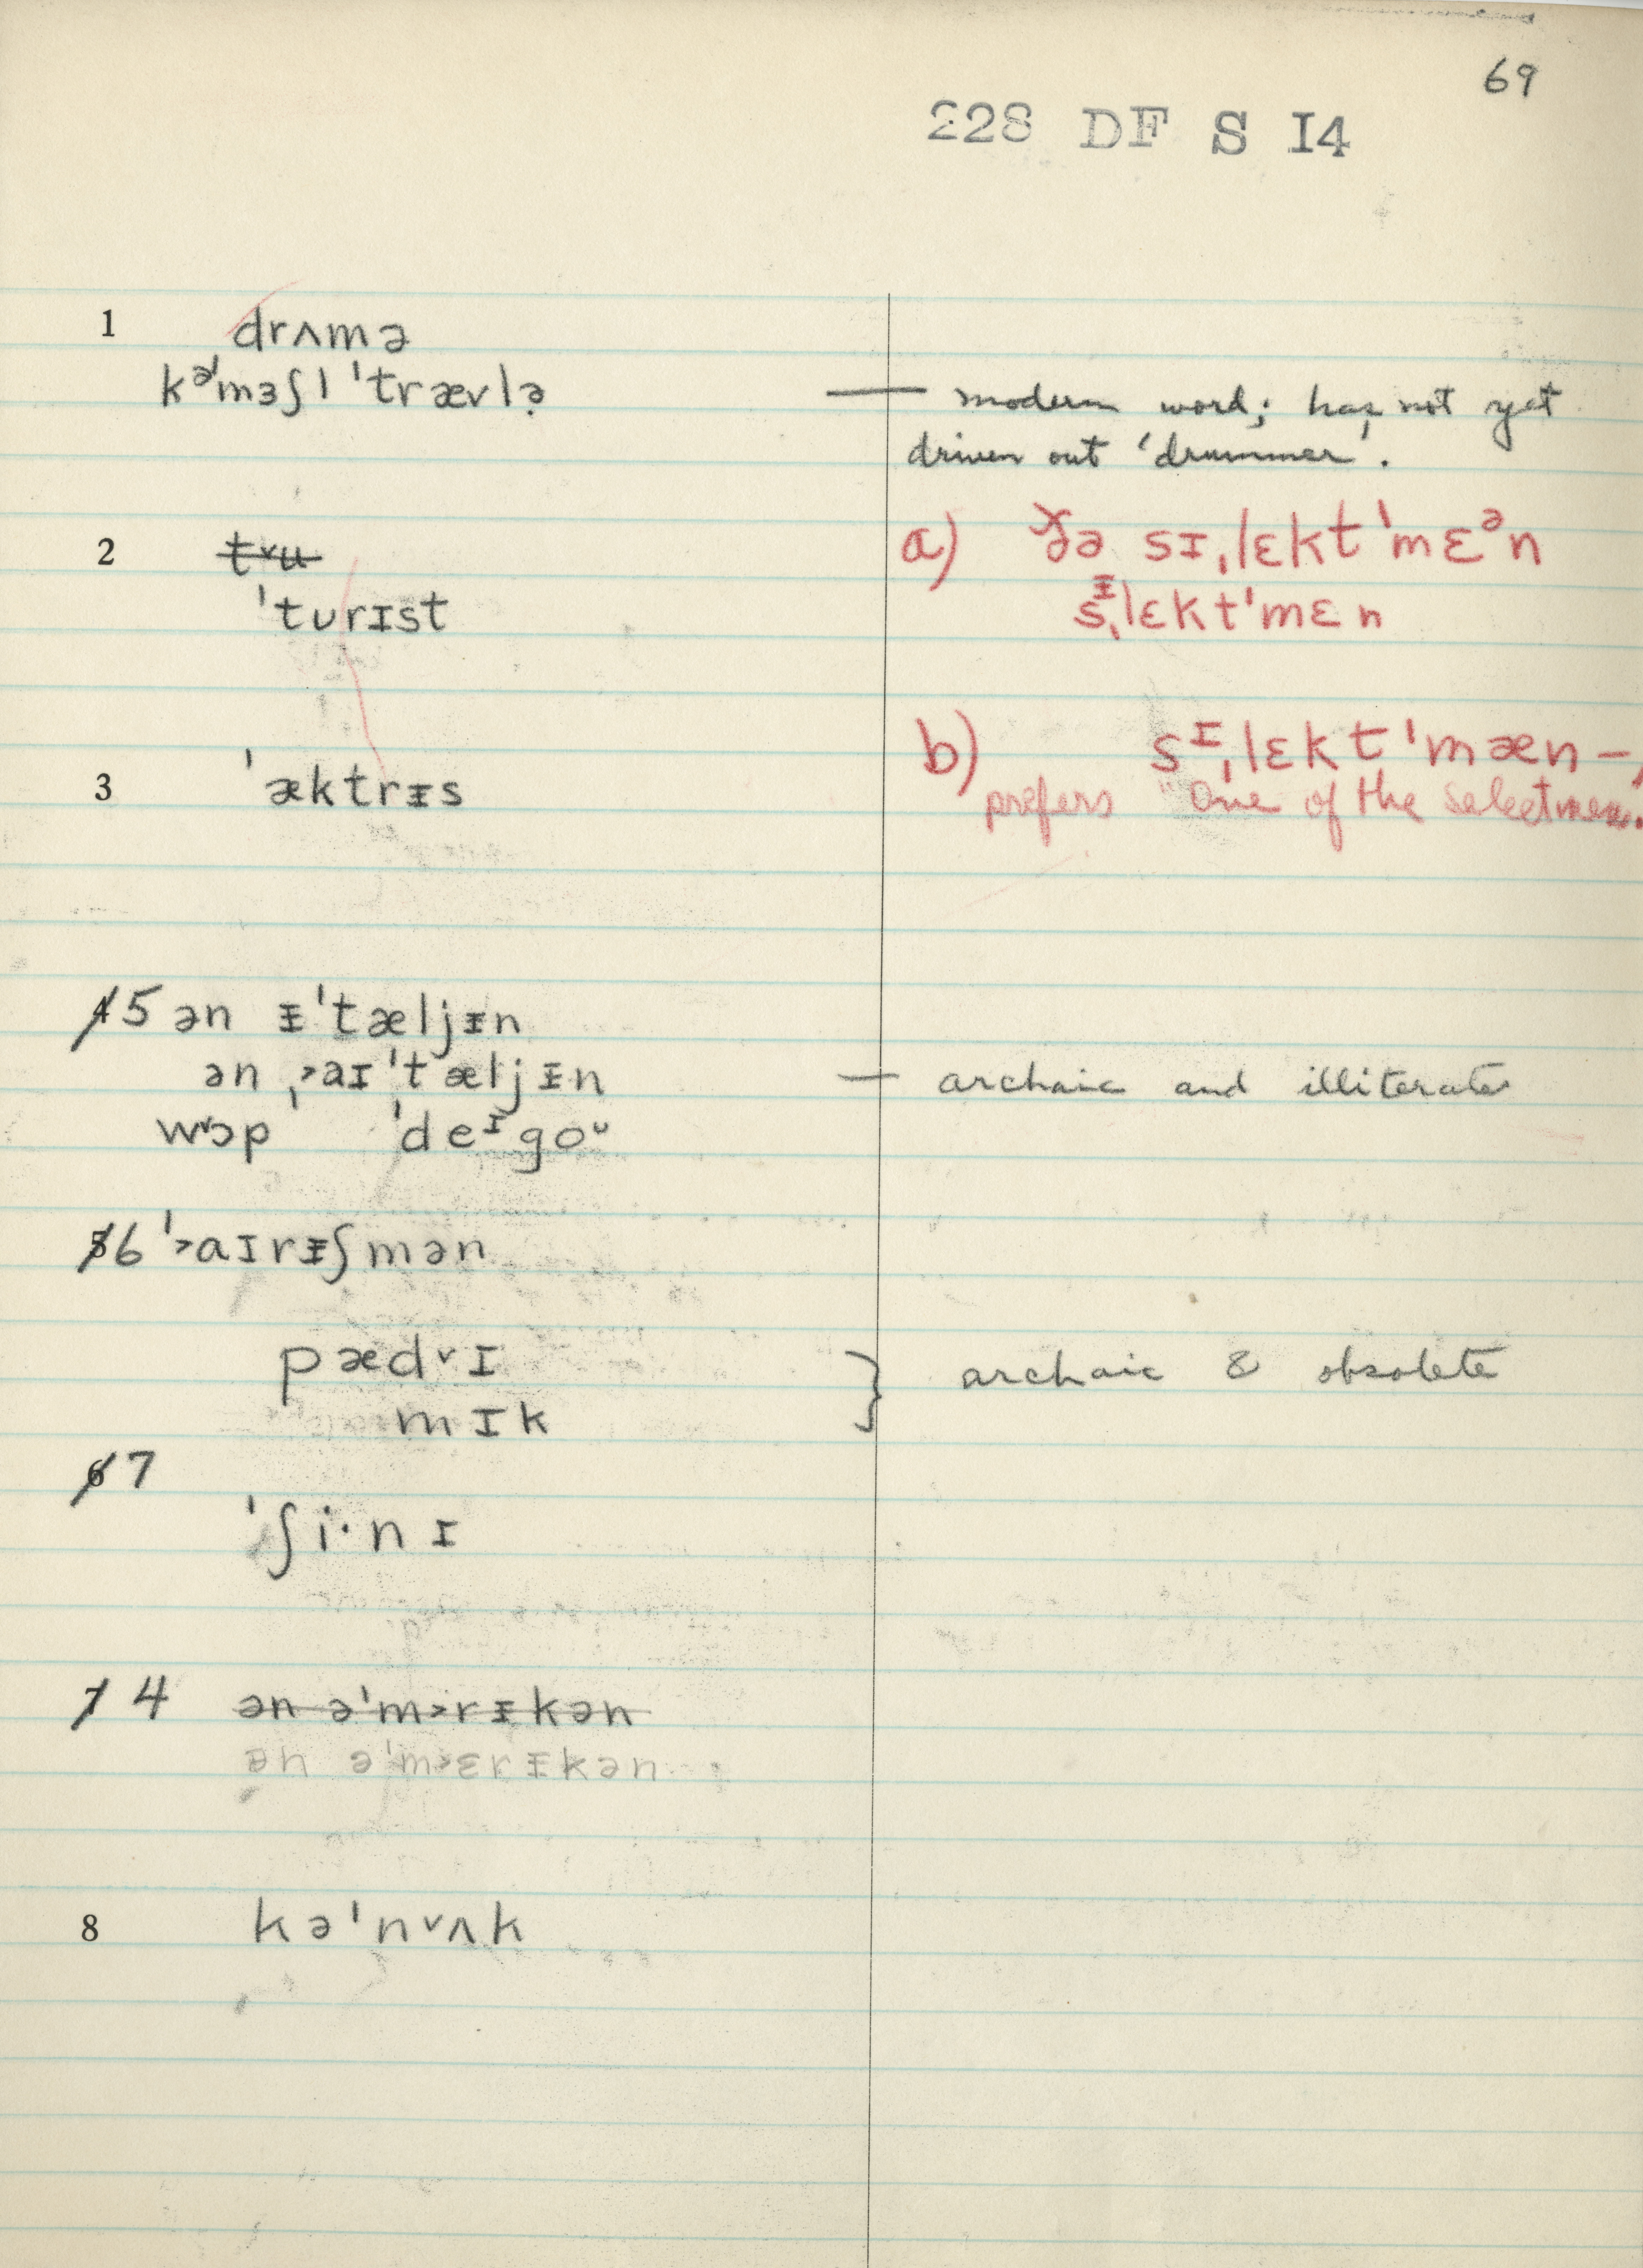 69
228 DF S I4
1 drʌmə
kə'mɜʃl 'trævlə̣ — modern word; has not yet
driven out 'drummer'.
2 t˅u
'tʊrɪst
a) ðə sɪˌlɛkt'mɛᵊn
sᵻˌlɛkt'mɛn
3 'æktrᵻs
b) sᶦˌlɛkt'mæn –,
prefers "One of the selectmen.
4 5 ən ᵻ'tæljᵻn
ən ˌ˃aɪ'tæljᵻn — archaic and illiterate
w˅ɔp 'deᶦgoᵘ
5 6 '˃aɪrᵻʃmən
pæd˅ɪ } archaic & obsolete
mɪk
6 7
'ʃi·nɪ
7 4 ən ə'm˃rᵻkən
ᵻn ə'm˃ɛrᵻkən
8 kə'n˅ʌk